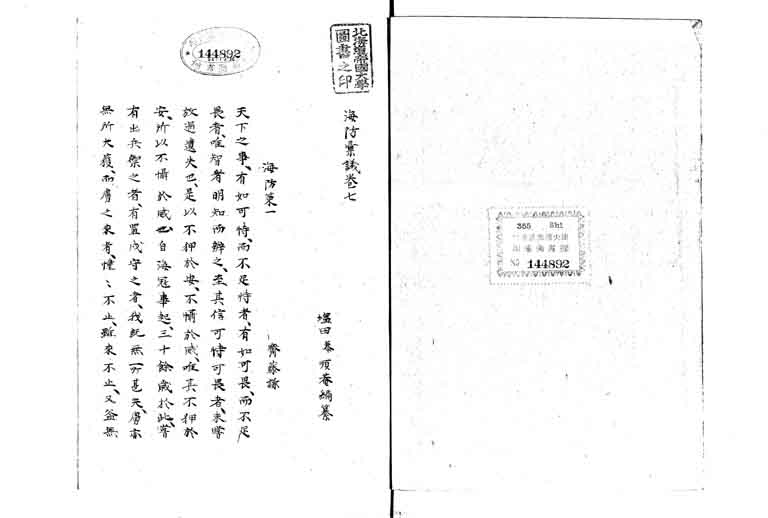 355 Shi
144892
北海道帝國大學
圖書之印
144892
海防彙議卷七
塩田 順庵編纂
海防策一
齊藤謙
天下之事、有如可恃、而不足恃者、有如可畏、而不足
畏者、唯智者明知而辨之、至其信可恃可畏者、未嘗
故過遺失也、是以不狎於安、不懾於威、唯其不狎於
安、所以不懾於威也、自海寇事起、三十餘歲於此、嘗
有出兵禦之者、有置戍守之者、我既無一亡矢、虜亦
無所大獲、而虜之來者、憧〻不止、雖來不止、又益無